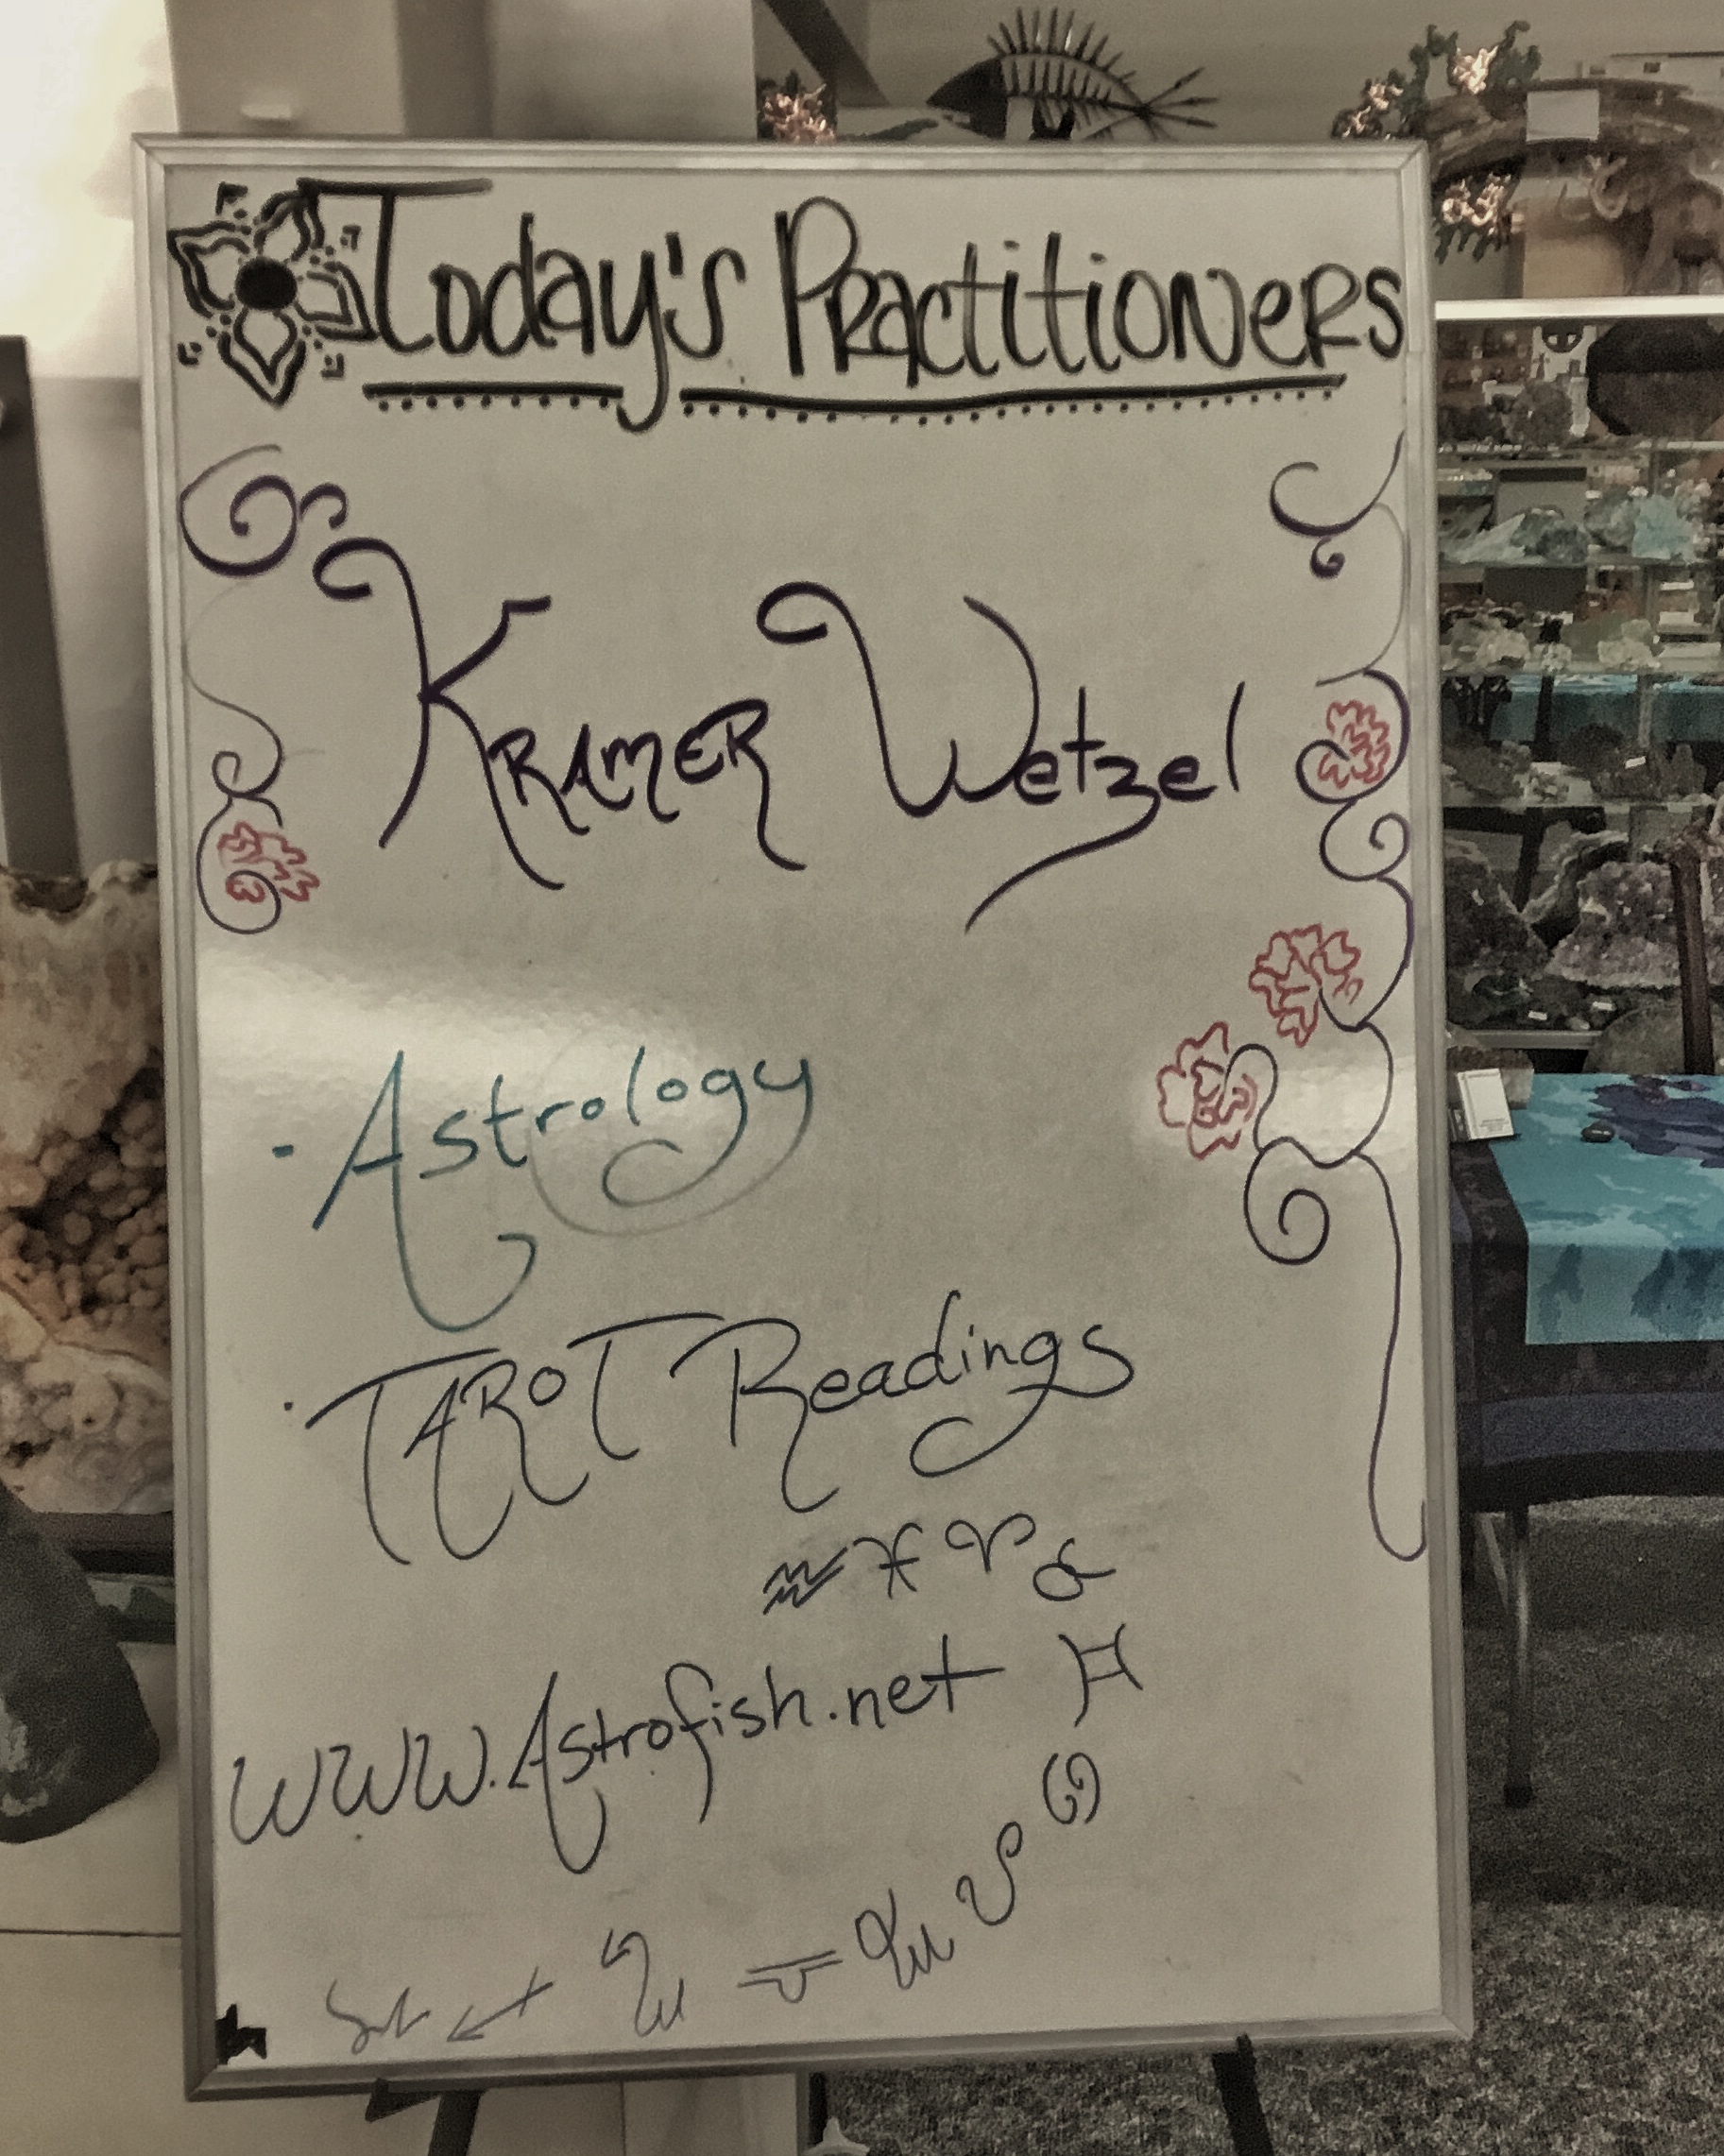 Today's Practitioners
Kramer Wetzel
- Astrology
· TAROT Readings
♒ ♓ ♈ ♉
www.Astrofish.net ♊
♋
♌
♑ ♐ ♏ ♎ ♍